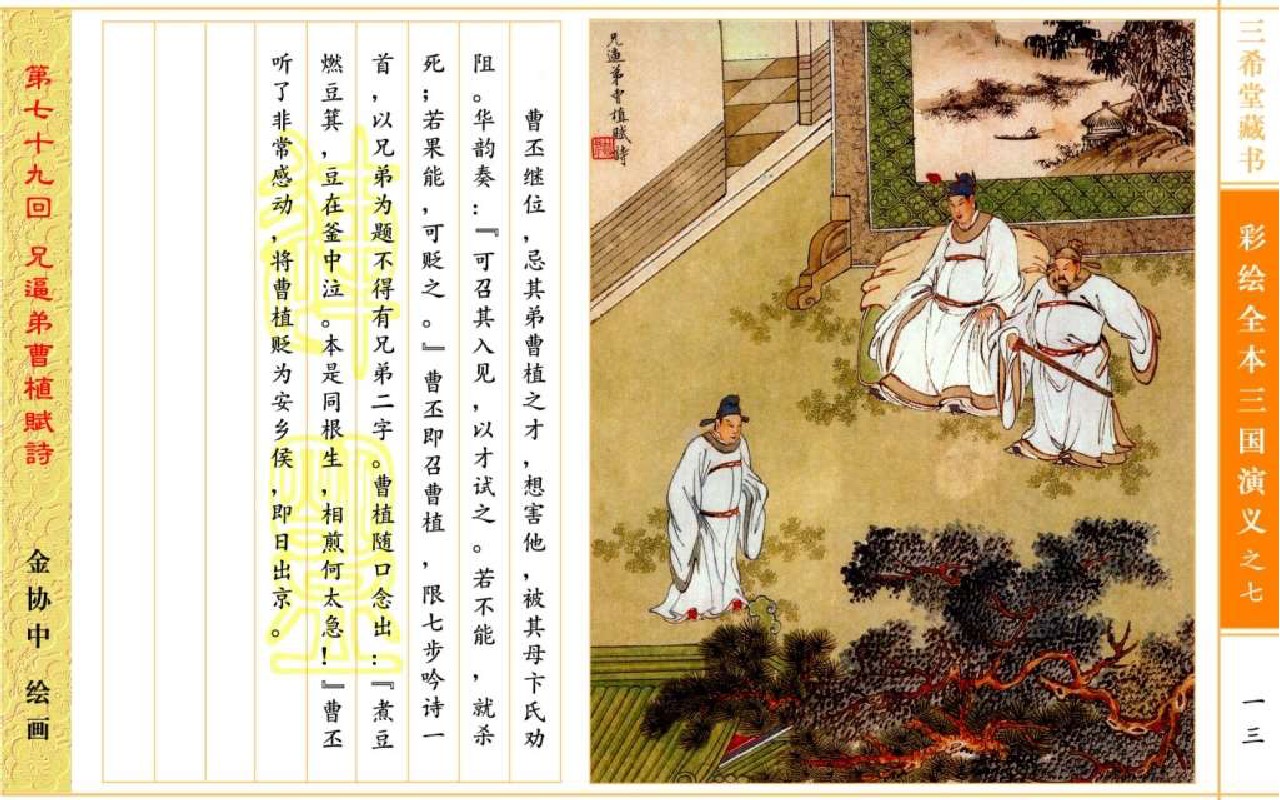 三希堂藏书
彩绘全本三国演义之七
一三
兄逼弟曹植賦詩
曹丕继位，忌其弟曹植之才，想害他，被其母卞氏劝
阻。华韵奏：『可召其入见，以才试之。若不能，就杀
死；若果能，可贬之。』曹丕即召曹植，限七步吟诗一
首，以兄弟为题不得有兄弟二字。曹植随口念出：『煮豆
燃豆箕，豆在釜中泣。本是同根生，相煎何太急！』曹丕
听了非常感动，将曹植贬为安乡侯，即日出京。
第七十九回 兄逼弟曹植賦詩
金协中 绘画